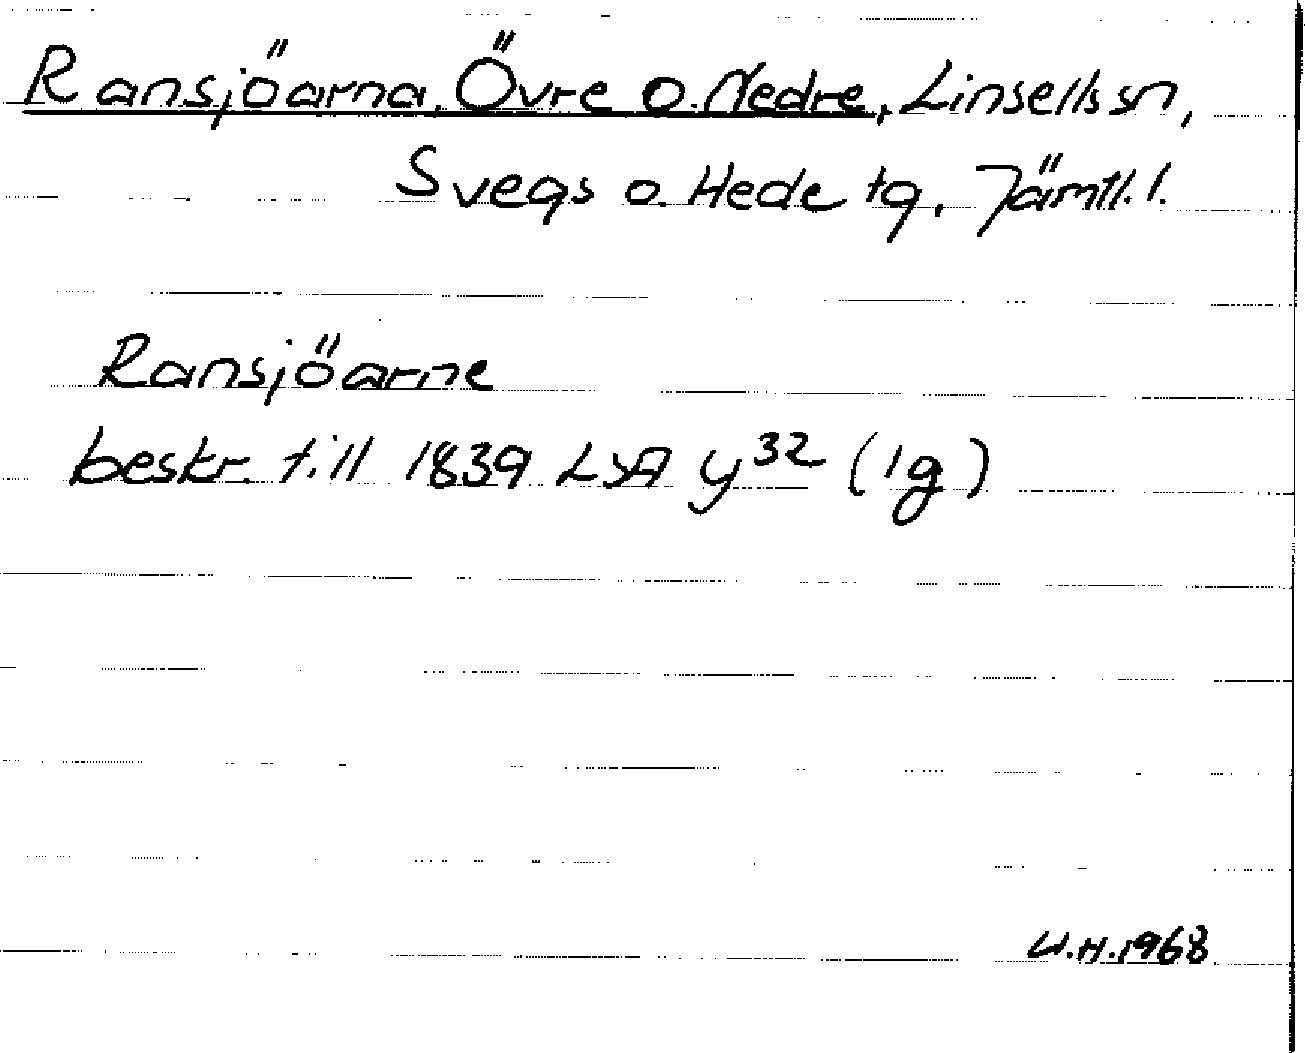 Ransjöarna, Övre o. Nedre, Linsells sn,
Svegs o. Hede tg, Jämtl. l.
Ransjöarne
beskr. till 1839 LSA y³² (1g)
U.H. 1968